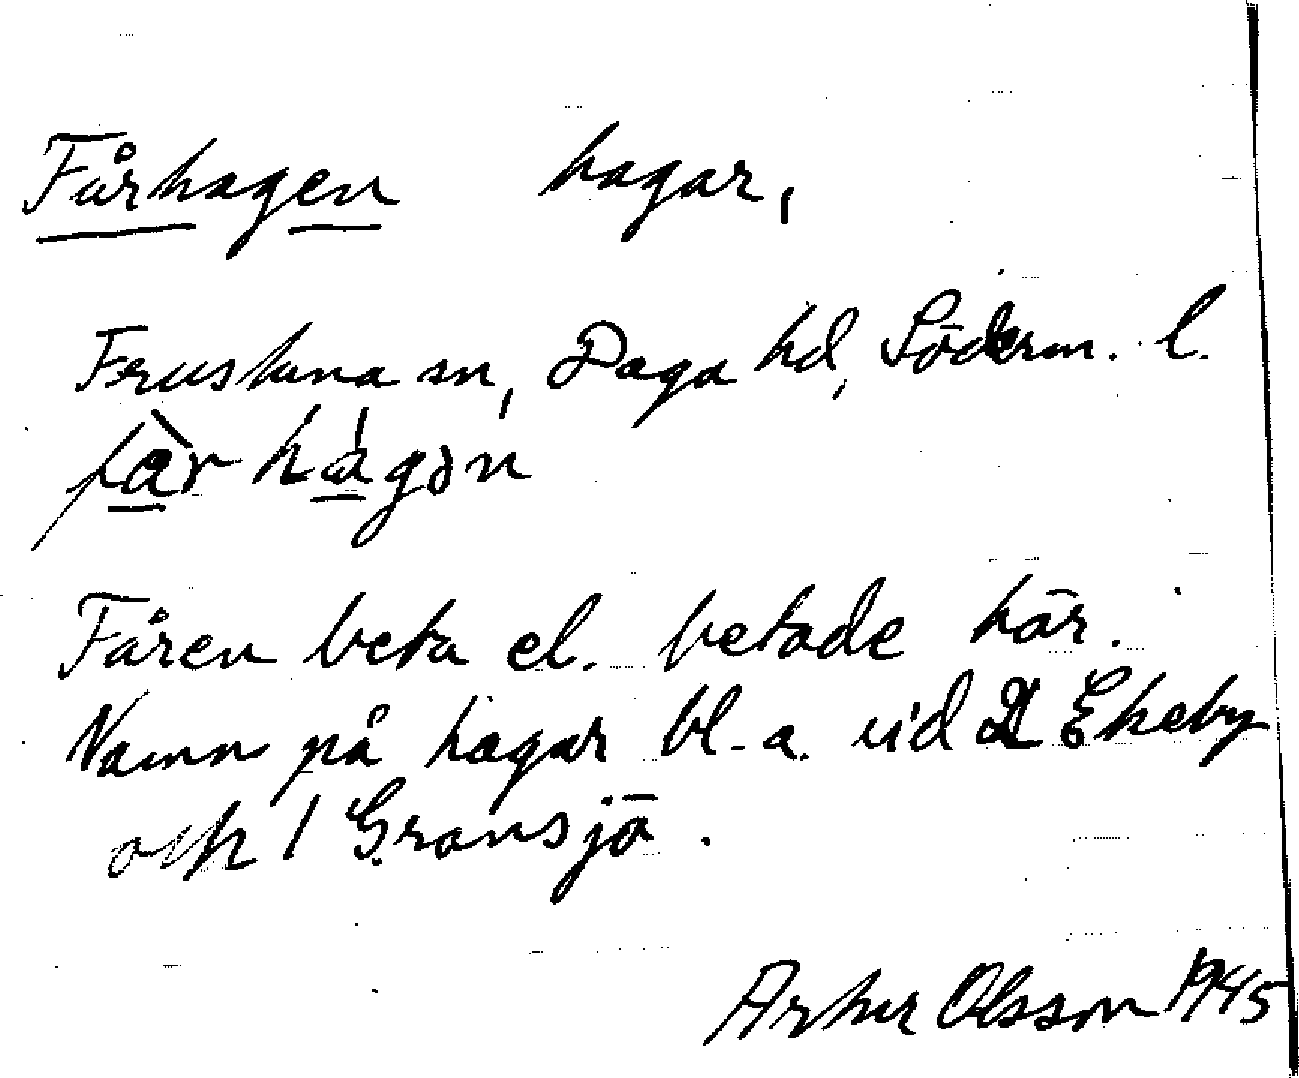 Fårhagen hagar,
Frustuna sn, Daga hd, Söderm. l.
fàr hágən
Fåren beta el. betade här.
Namn på hagar bl. a. vid 21 Ekeby
och 1 Gransjö.
Artur Olsson 1945